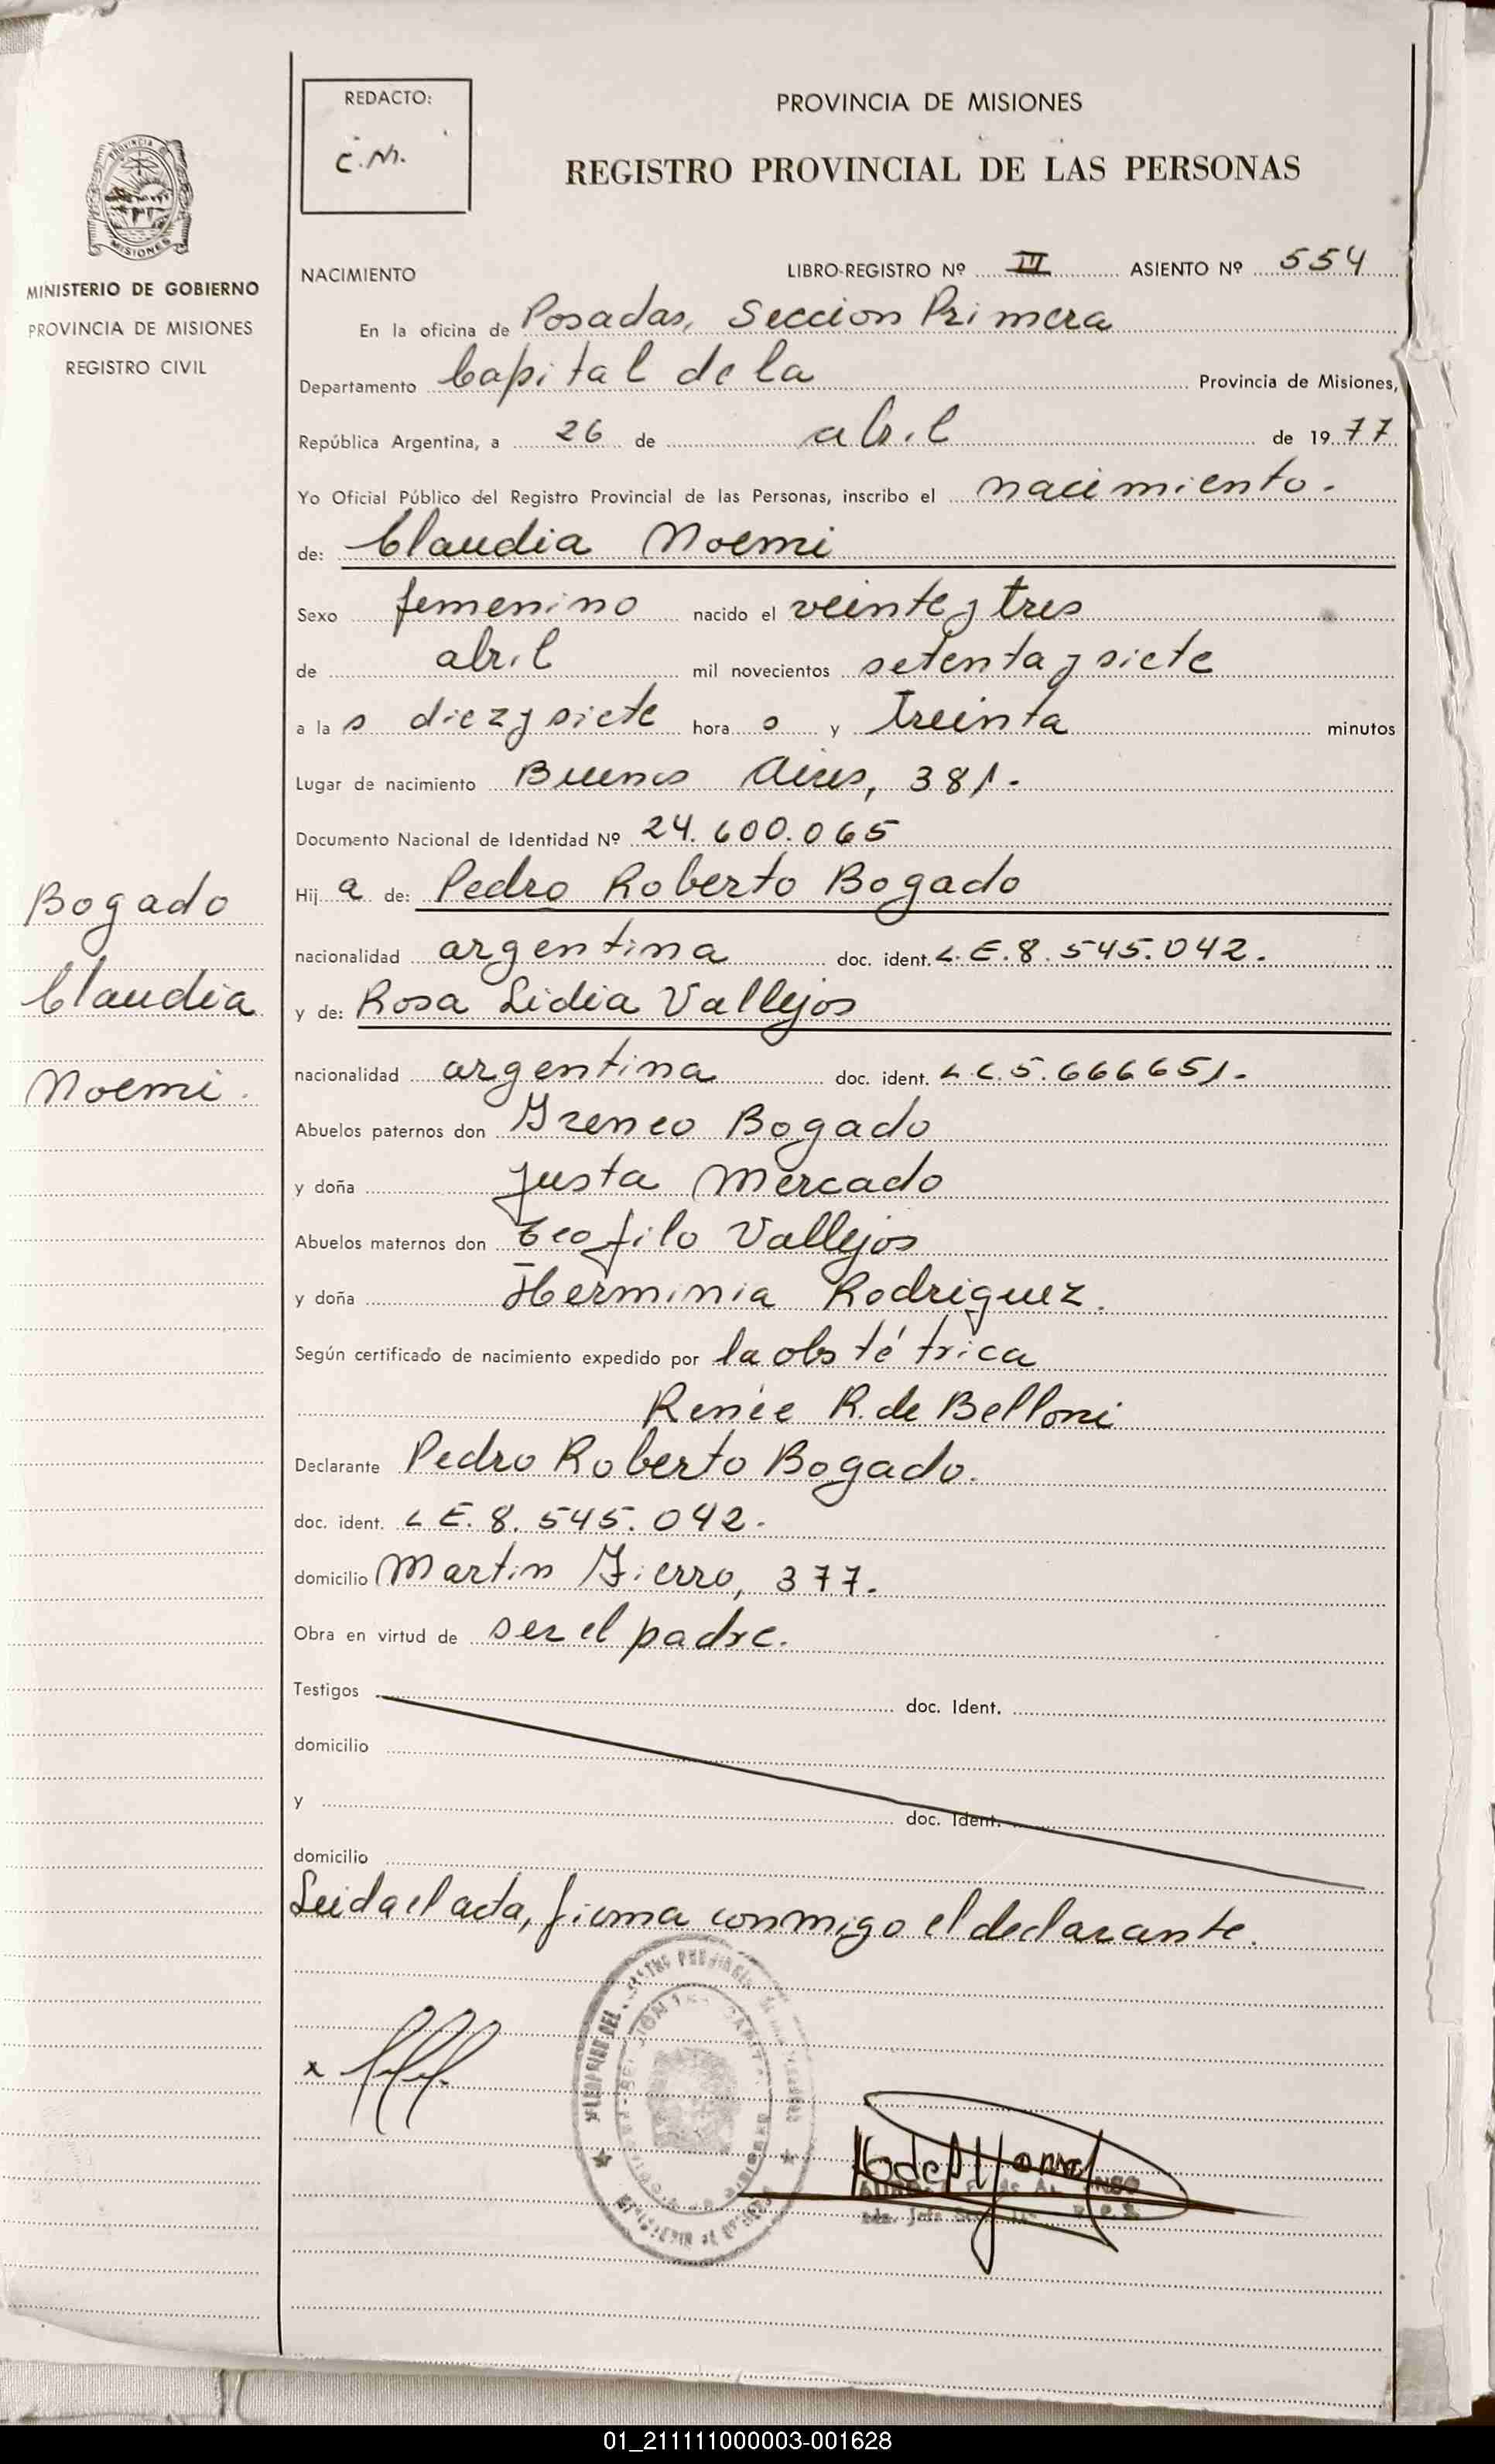 REDACTO:
C.M.
PROVINCIA DE MISIONES
REGISTRO PROVINCIAL DE LAS PERSONAS
PROVINCIA DE
MISIONES
MINISTERIO DE GOBIERNO
PROVINCIA DE MISIONES
REGISTRO CIVIL
NACIMIENTO LIBRO-REGISTRO Nº III ASIENTO Nº 554
En la oficina de Posadas, Seccion Primera
Departamento Capital de la Provincia de Misiones,
República Argentina, a 26 de abril de 1977
Yo Oficial Público del Registro Provincial de las Personas, inscribo el nacimiento.
de: Claudia Noemi
Sexo femenino nacido el veinte y tres
de abril mil novecientos setenta y siete
a la s diez y siete hora s y treinta minutos
Lugar de nacimiento Buenos Aires, 381.
Documento Nacional de Identidad Nº 24.600.065
Hij a de: Pedro Roberto Bogado
nacionalidad argentina doc. ident. L.E. 8.545.042.
y de: Rosa Lidia Vallejos
nacionalidad argentina doc. ident. L.C. 5.666651.
Abuelos paternos don Ireneo Bogado
y doña Justa Mercado
Abuelos maternos don Teofilo Vallejos
y doña Herminia Rodriguez.
Según certificado de nacimiento expedido por la obstétrica
Renée R. de Belloni
Declarante Pedro Roberto Bogado.
doc. ident. L E. 8. 545. 042.
domicilio Martin Fierro, 377.
Obra en virtud de ser el padre.
Testigos doc. Ident.
domicilio
y doc. Ident.
domicilio
Leida el acta, firma conmigo el declarante.
Bogado
Claudia
Noemi.
x
01_211111000003-001628